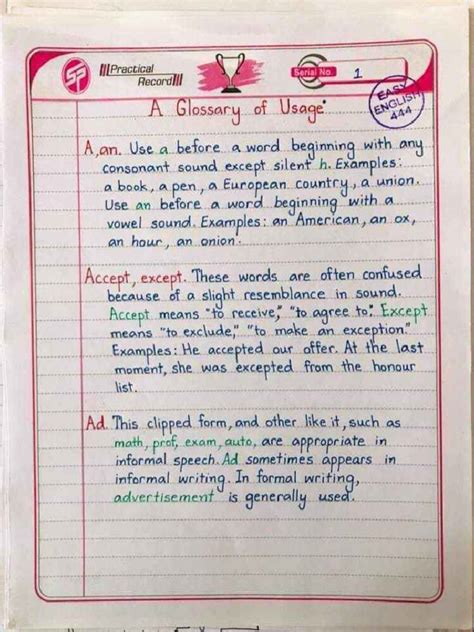 SP
Practical
Record
Serial No. 1
EASY
ENGLISH
444
A Glossary of Usage
A, an. Use a before a word beginning with any
consonant sound except silent h. Examples:
a book, a pen, a European country, a union.
Use an before a word beginning with a
vowel sound. Examples: an American, an ox,
an hour, an onion.
Accept, except. These words are often confused
because of a slight resemblance in sound.
Accept means "to receive," "to agree to". Except
means "to exclude," "to make an exception."
Examples: He accepted our offer. At the last
moment, she was excepted from the honour
list.
Ad. This clipped form, and other like it, such as
math, prof, exam, auto, are appropriate in
informal speech. Ad sometimes appears in
informal writing. In formal writing,
advertisement is generally used.